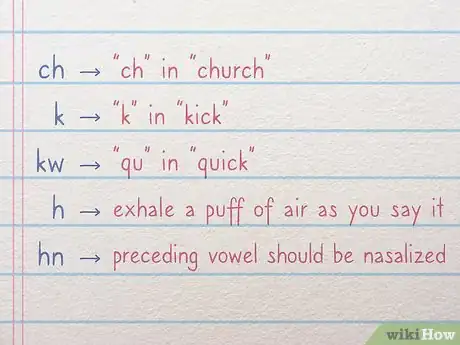 ch → "ch" in "church"
k → "k" in "kick"
kw → "qu" in "quick"
h → exhale a puff of air as you say it
hn → preceding vowel should be nasalized
wikiHow